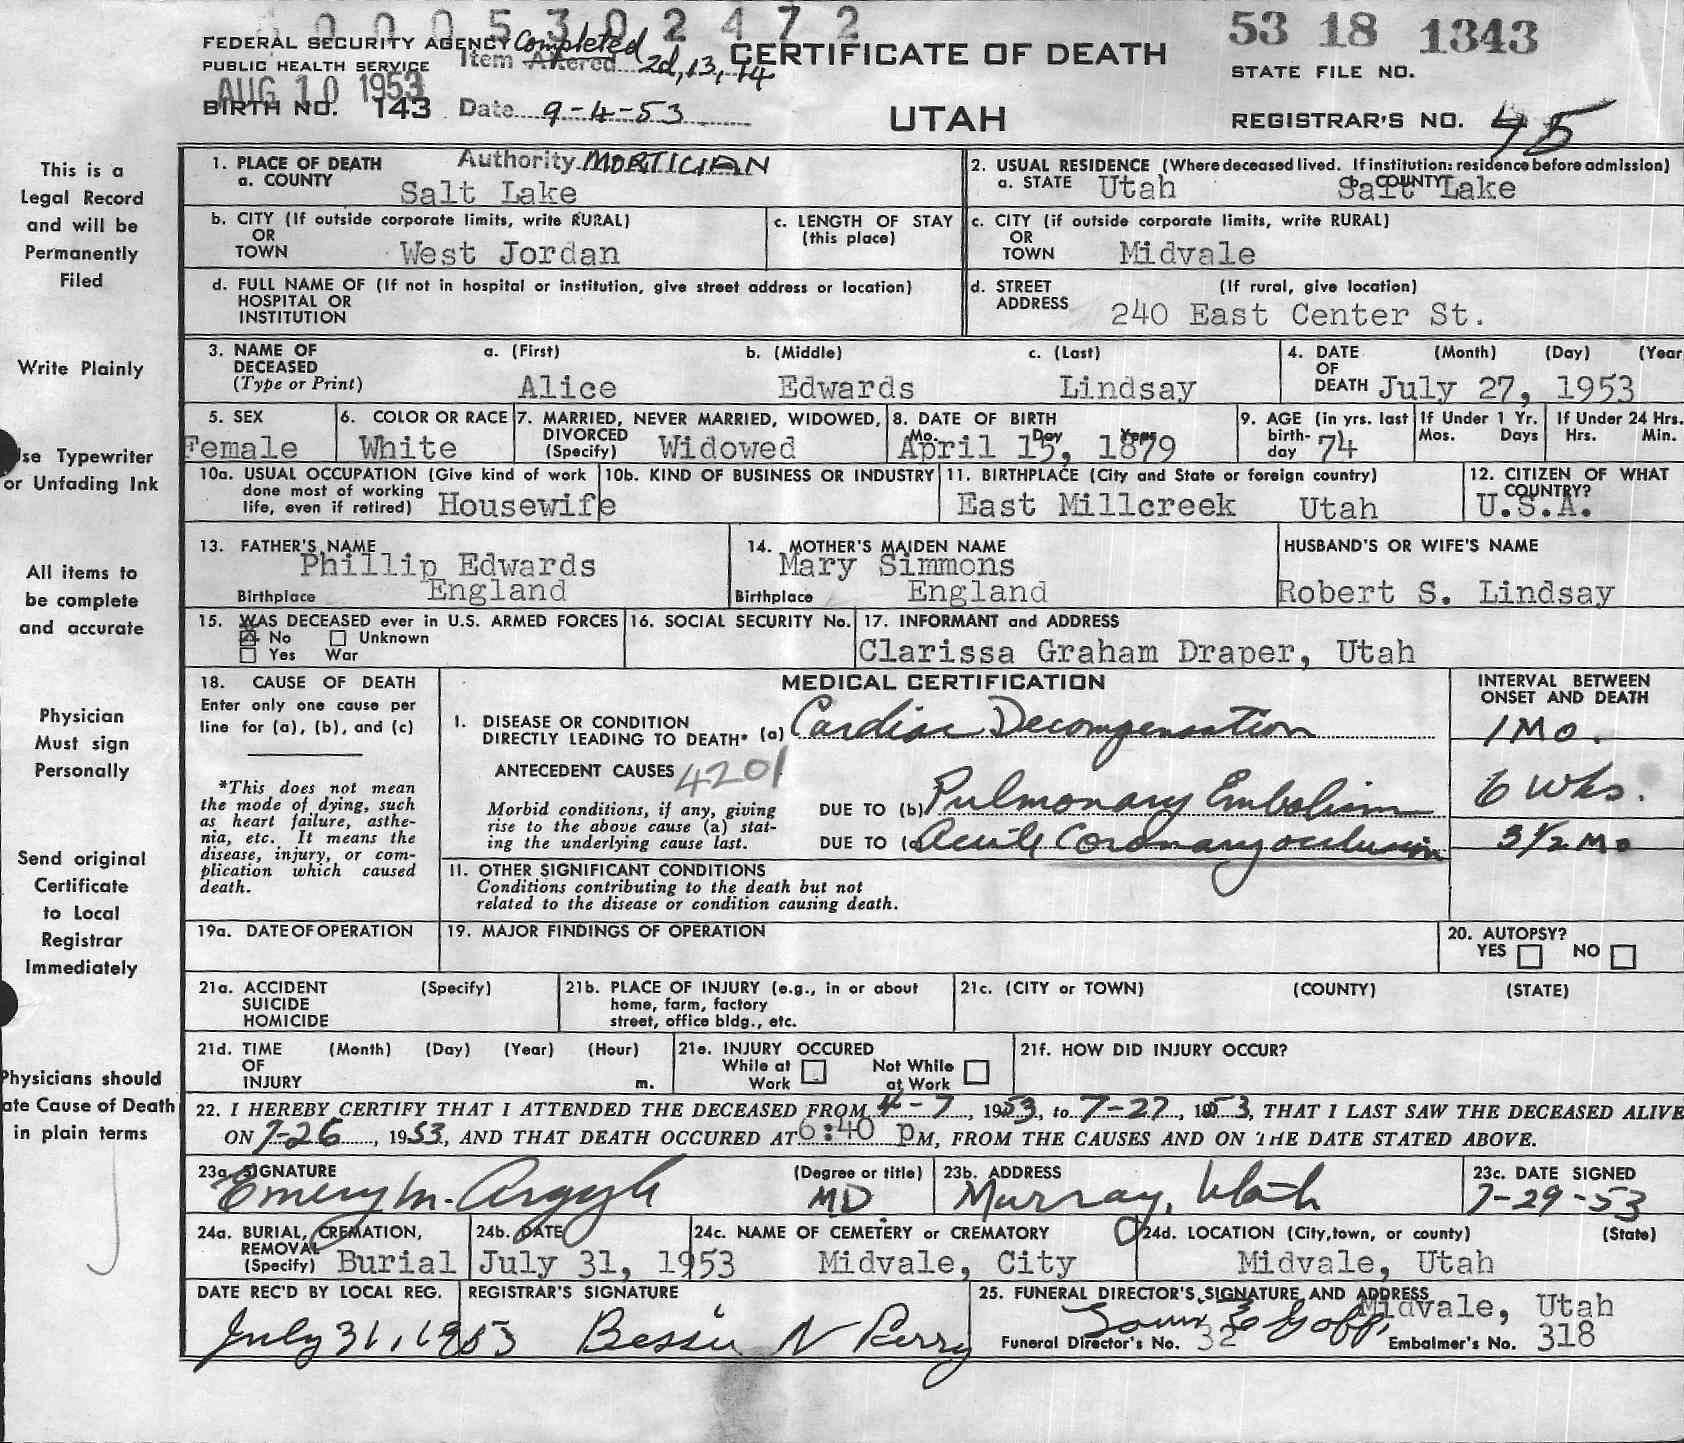 0 0 0 5 3 0 2 4 7 2
53 18 1343
FEDERAL SECURITY AGENCY Completed
PUBLIC HEALTH SERVICE Item Altered 2d, 13, 14
CERTIFICATE OF DEATH
STATE FILE NO.
AUG 10 1953
BIRTH NO. 143 Date 9-4-53
UTAH
REGISTRAR'S NO. 45
This is a
Legal Record
and will be
Permanently
Filed
Write Plainly
se Typewriter
or Unfading Ink
All items to
be complete
and accurate
Physician
Must sign
Personally
Send original
Certificate
to Local
Registrar
Immediately
Physicians should
ate Cause of Death
in plain terms
1. PLACE OF DEATH Authority MORTICIAN
a. COUNTY Salt Lake
2. USUAL RESIDENCE (Where deceased lived. If institution: residence before admission)
a. STATE Utah COUNTY Salt Lake
b. CITY (If outside corporate limits, write RURAL)
OR
TOWN West Jordan
c. LENGTH OF STAY
(this place)
c. CITY (if outside corporate limits, write RURAL)
OR
TOWN Midvale
d. FULL NAME OF (If not in hospital or institution, give street address or location)
HOSPITAL OR
INSTITUTION
d. STREET (If rural, give location)
ADDRESS 240 East Center St.
3. NAME OF a. (First) b. (Middle) c. (Last)
DECEASED
(Type or Print) Alice Edwards Lindsay
4. DATE (Month) (Day) (Year
OF
DEATH July 27, 1953
5. SEX
Female
6. COLOR OR RACE
White
7. MARRIED, NEVER MARRIED, WIDOWED,
DIVORCED
(Specify) Widowed
8. DATE OF BIRTH
Mo. Day Year
April 15, 1879
9. AGE (in yrs. last
birth-
day 74
If Under 1 Yr.
Mos. Days
If Under 24 Hrs.
Hrs. Min.
10a. USUAL OCCUPATION (Give kind of work
done most of working
life, even if retired) Housewife
10b. KIND OF BUSINESS OR INDUSTRY
11. BIRTHPLACE (City and State or foreign country)
East Millcreek Utah
12. CITIZEN OF WHAT
COUNTRY?
U.S.A.
13. FATHER'S NAME
Phillip Edwards
Birthplace England
14. MOTHER'S MAIDEN NAME
Mary Simmons
Birthplace England
HUSBAND'S OR WIFE'S NAME
Robert S. Lindsay
15. WAS DECEASED ever in U.S. ARMED FORCES
X No Unknown
Yes War
16. SOCIAL SECURITY No.
17. INFORMANT and ADDRESS
Clarissa Graham Draper, Utah
18. CAUSE OF DEATH
Enter only one cause per
line for (a), (b), and (c)
*This does not mean
the mode of dying, such
as heart failure, asthe-
nia, etc. It means the
disease, injury, or com-
plication which caused
death.
MEDICAL CERTIFICATION
INTERVAL BETWEEN
ONSET AND DEATH
I. DISEASE OR CONDITION
DIRECTLY LEADING TO DEATH* (a) Cardiac Decompensation 1 Mo.
ANTECEDENT CAUSES 4201
Morbid conditions, if any, giving
rise to the above cause (a) stat-
ing the underlying cause last.
DUE TO (b) Pulmonary Embolism 6 Wks.
DUE TO (c Acute Coronary occlusion 3 1/2 Mo
II. OTHER SIGNIFICANT CONDITIONS
Conditions contributing to the death but not
related to the disease or condition causing death.
19a. DATE OF OPERATION
19. MAJOR FINDINGS OF OPERATION
20. AUTOPSY?
YES NO
21a. ACCIDENT (Specify)
SUICIDE
HOMICIDE
21b. PLACE OF INJURY (e.g., in or about
home, farm, factory
street, office bldg., etc.
21c. (CITY or TOWN) (COUNTY) (STATE)
21d. TIME (Month) (Day) (Year) (Hour)
OF
INJURY m.
21e. INJURY OCCURED
While at Not While
Work at Work
21f. HOW DID INJURY OCCUR?
22. I HEREBY CERTIFY THAT I ATTENDED THE DECEASED FROM 4-7, 1953, to 7-27, 1953, THAT I LAST SAW THE DECEASED ALIVE
ON 7-26, 1953, AND THAT DEATH OCCURED AT 6:40 PM, FROM THE CAUSES AND ON THE DATE STATED ABOVE.
23a. SIGNATURE (Degree or title)
Emery M. Argyle MD
23b. ADDRESS
Murray, Utah
23c. DATE SIGNED
7-29-53
24a. BURIAL, CREMATION,
REMOVAL
(Specify) Burial
24b. DATE
July 31, 1953
24c. NAME OF CEMETERY or CREMATORY
Midvale, City
24d. LOCATION (City, town, or county) (State)
Midvale, Utah
DATE REC'D BY LOCAL REG.
July 31, 1953
REGISTRAR'S SIGNATURE
Bessie N Perry
25. FUNERAL DIRECTOR'S SIGNATURE AND ADDRESS
Midvale, Utah
Goff
Funeral Director's No. 32 Embalmer's No. 318